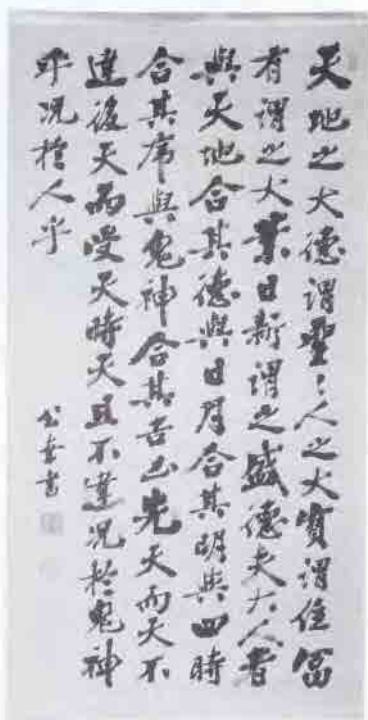 天地之大德謂聖〻人之大寶謂位富
有謂之大業日新謂之盛德夫大人者
與天地合其德與日月合其明與四時
合其序與鬼神合其吉凶先天而天不
違後天而受天時天且不違況於鬼神
乎況於人乎
公壽書